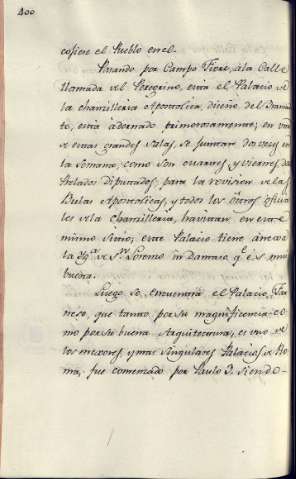 400
cosiese el Pueblo en el.
Pasando por Campo Fiore, à la Calle
llamada del Peregrino, està el Palacio de
la chancilleria Apostolica, diseño del Braman
te, està adornado primorosamente; en una
de estas grandes Salas, se juntan dos veces en
la Semana, como son martes, y viernes los
Prelados Diputados, para la revision de las
Bulas Apostolicas, y todos los otros oficia
les de la chancilleria, havitan en este
mismo Sitio; este Palacio tiene anexa
la Yg.ª de S.n Lorenzo in Damaso q.e es muy
buena.
Luego se encuentra el Palacio Far
nese, que tanto por su magnificencia, co
mo por su buena Arquitectura, es uno de
los mexores, y mas singulares Palacios de Ro
ma, fue comenzado por Paulo 3. siendo-